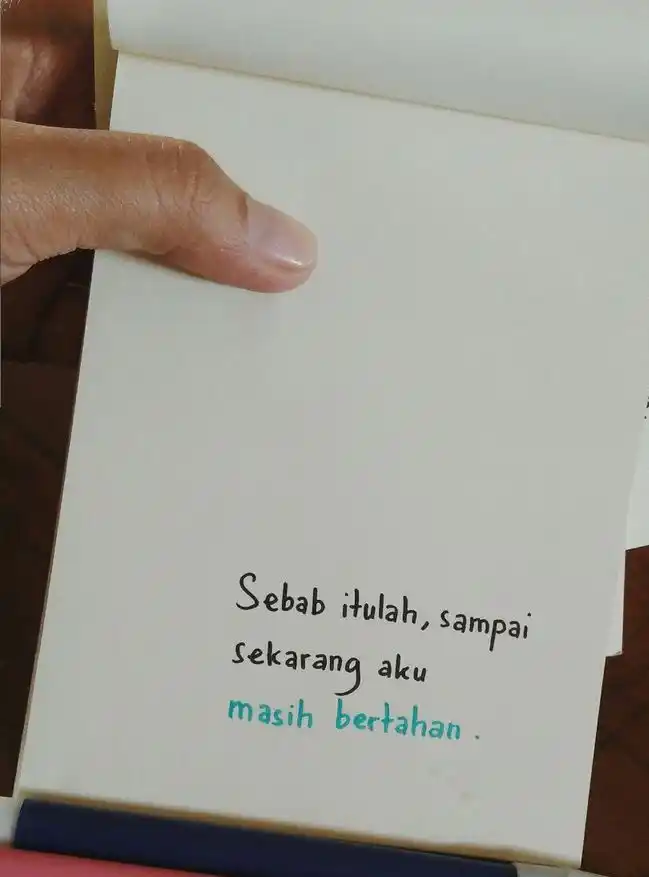 Sebab itulah, sampai
sekarang aku
masih bertahan.